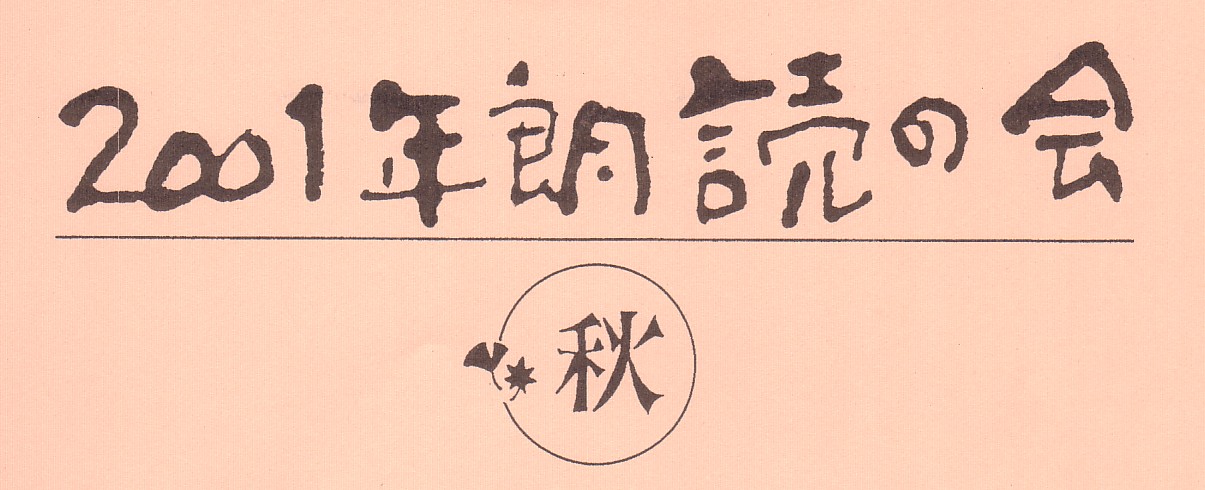 2001年朗読の会
秋